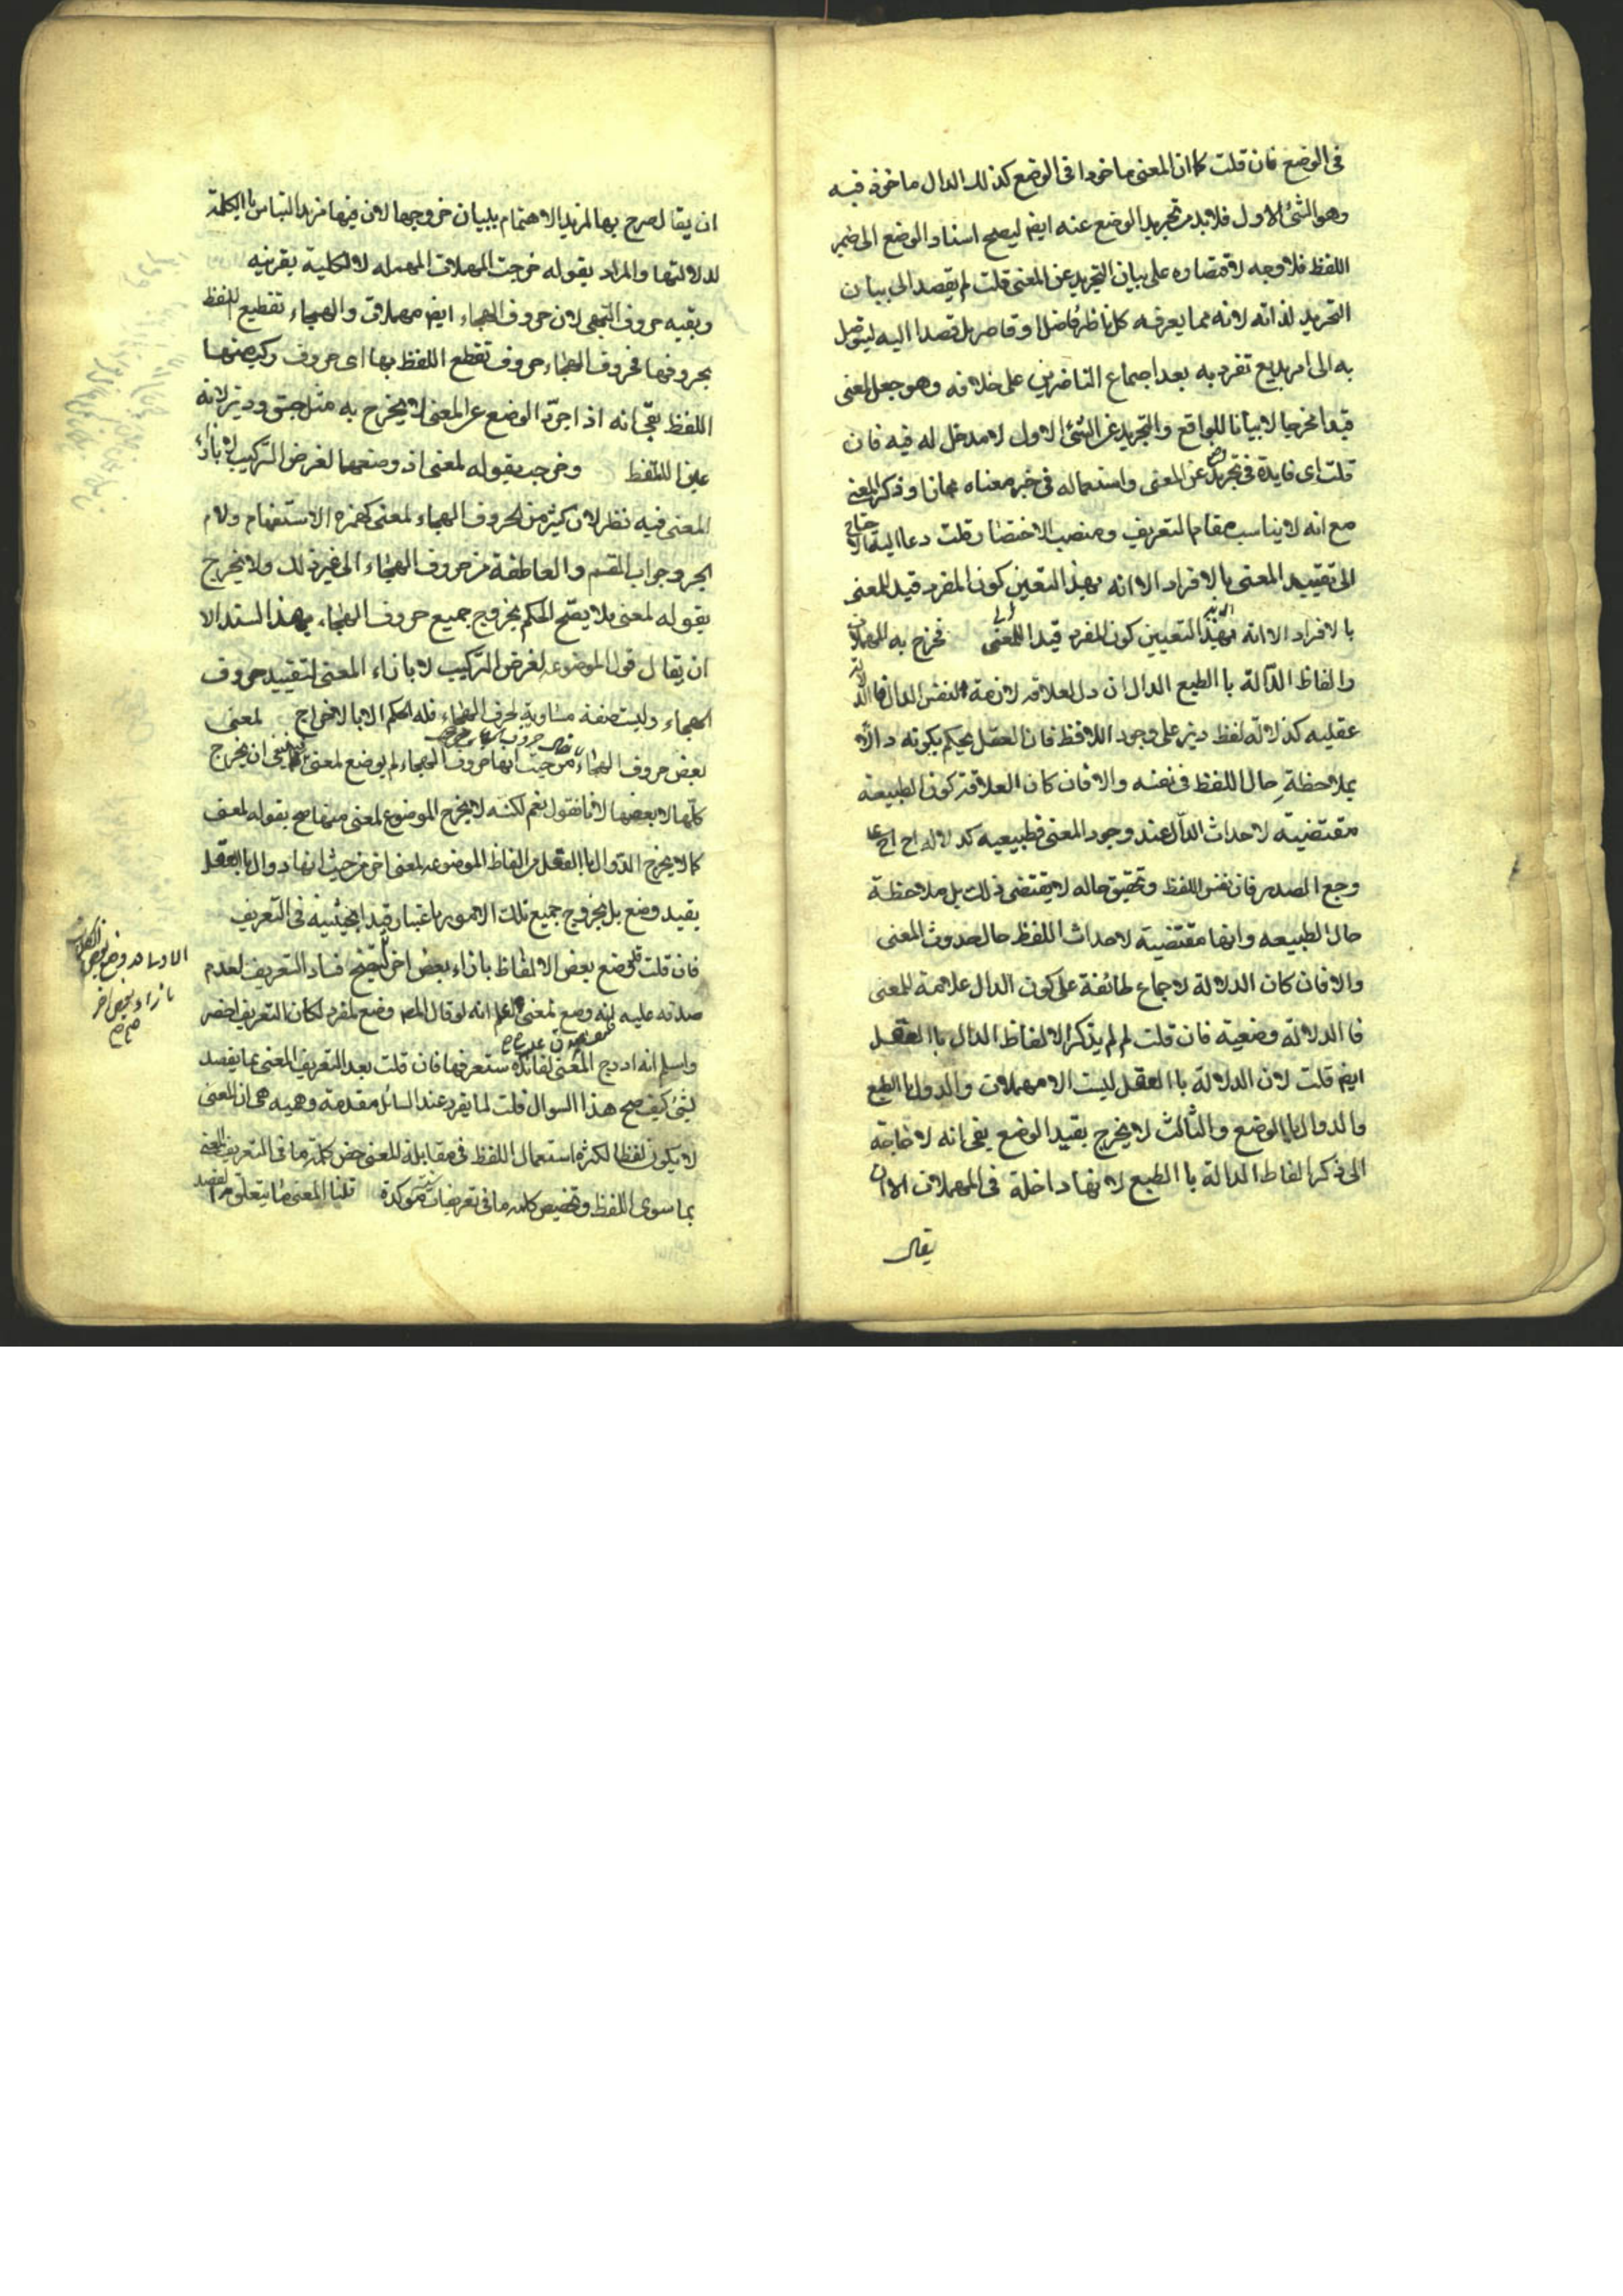 فى الوضع فان قلت كما ان المعنى ماخوذا فى الوضع كذلك الدال ماخوذ فيه
وهو الشئ الاول فلابد من تجريد الوضع عنه ايض ليصح اسناد الوضع الى ضمير
اللفظ فلا وجه لاقتصاره على بيان التجريد عن المعنى قلت لم يقصد الى بيان
التجريد لذاته لانه مما يعرفه كل ناظر فاضل او قاصر بل قصد اليه ليتوصل
به الى امر بديع تفرد به بعد اجماع الناضرين على خلافه وهو جعل المعنى
قيدا مخرجا لا بيانا للواقع والتجريد عن الشئ الاول لا مدخل له فيه فان
قلت اى فايدة فى تجريده عن المعنى واستعماله فى خبر معناه مجازا وذكر المعنى
مع انه لا يناسب مقام التعريف ومنصب الاختصار قلت دعا اليه الاحتياج
الى تقييد المعنى بالافراد الا انه بهذا التعين كون المفرد قيد المعنى
بالافراد الا انه بهذا التعيين كون المفرد قيدا للمعنى فخرج به المهملات
والفاظ الدالة با الطبع الدال ان دل لعلاقة لازمة لنفس الدال فالدلالة
عقليه كدلالة لفظ ديز على وجود اللافظ فان العقل يحكم بكونه دالا
بملاحظة حال اللفظ فى نفسه والا فان كان العلاقة كون الطبيعة
مقتضية لاحداث الدال عند وجود المعنى فطبيعيه كدلالة اح اح على
وجع الصدر فان نفس اللفظ وتحقيق حاله لا يقتضى ذلك بل ملاحظة
حال الطبيعه وانها مقتضية لاحداث اللفظ حال حدوث المعنى
والا فان كان الدلالة لاجماع طائفة على كون الدال علامة للمعنى
فا الدلالة وضعية فان قلت لم لم يذكر الالفاظ الدال با العقل
ايض قلت لان الدلالة با العقل ليست الا مهملات والدوال با الطبع
والدوال با الوضع والثالث لا يخرج بقيد الوضع بقى انه لا حاجة
الى ذكر الفاظ الدالة با الطبع لانها داخلة فى المهملات الا ان
يقال
ان يقال صرح بها لمزيد الاهتمام ببيان خروجها لان فيها مزيد التباس با الكلمة
لدلالتها والمراد بقوله خرجت المهملات المهمله لا الكلية بقرنيه
وبقيه حروف التهجى لان حروف الهجاء ايض مهملات والهجاء تقطيع اللفظ
بحروفها فحروف الهجاء حروف تقطع اللفظ بها اى حروف ركب منها
اللفظ بقى انه اذا جرد الوضع عن المعنى لا يخرج به مثل جسق وديز لانه
عين للتلفظ وخرجت بقوله لمعنى اذ وضعها لغرض التركيب لا بازاء
المعنى فيه نظر لان كثيرا من الحروف الهجاء لمعنى كهمزه الاستفهام ولام
الجر وجواب القسم والعاطفة من حروف الهجاء الى غير ذلك ولا يخرج
بقوله لمعنى بلا يصح الحكم بخروج جميع حروف الهجاء بهذا السند الا
ان يقال قول الموضوعه لغرض التركيب لا بازاء المعنى لتقييد حروف
الهجاء وليست صفة مساوية لحرف الهجاء فله الحكم الا بالاخراج لمعنى
بعض حروف الهجاء من حيث انها حروف الهجاء لم يوضع لمعنى فينبغى ان يخرج
كلها لا بعضها لانا نقول نعم لكنه لا يخرج الموضوع لمعنى منها صح بقوله لمعنى
كما لا يخرج الدوال با العقل من الفاظ الموضوعه لمعنى اخر من حيث انها دوال با العقل
بقيد وضع بل بخروج جميع تلك الامور باعتبار قيد الحيثيه فى التعريف
فان قلت قد وضع بعض الالفاظ بازاء بعض اخر فيتضح فساد التعريف لعدم
صدقه عليه لانه وضع لمعنى اعلم انه لو قال المص وضع لمفرد لكان التعريف اخصر
واسلم انه ادرج المعنى لفائدة ستعرفها فان قلت بعد التعريف المعنى بما يقصد
بشئ كيف صح هذا السوال قلت لما يفرد عند السائل مقدمة وهميه هى ان المعنى
لا يكون لفظا لكثره استعمال اللفظ فى مقابلة للمعنى خص كلمة ما فى التعريف المعنى
بما سوى اللفظ وتخصيص كلمه ما فى تعريفات موكدة قلنا المعنى ما يتعلق به القصد
بازاء بعض اخر
صح